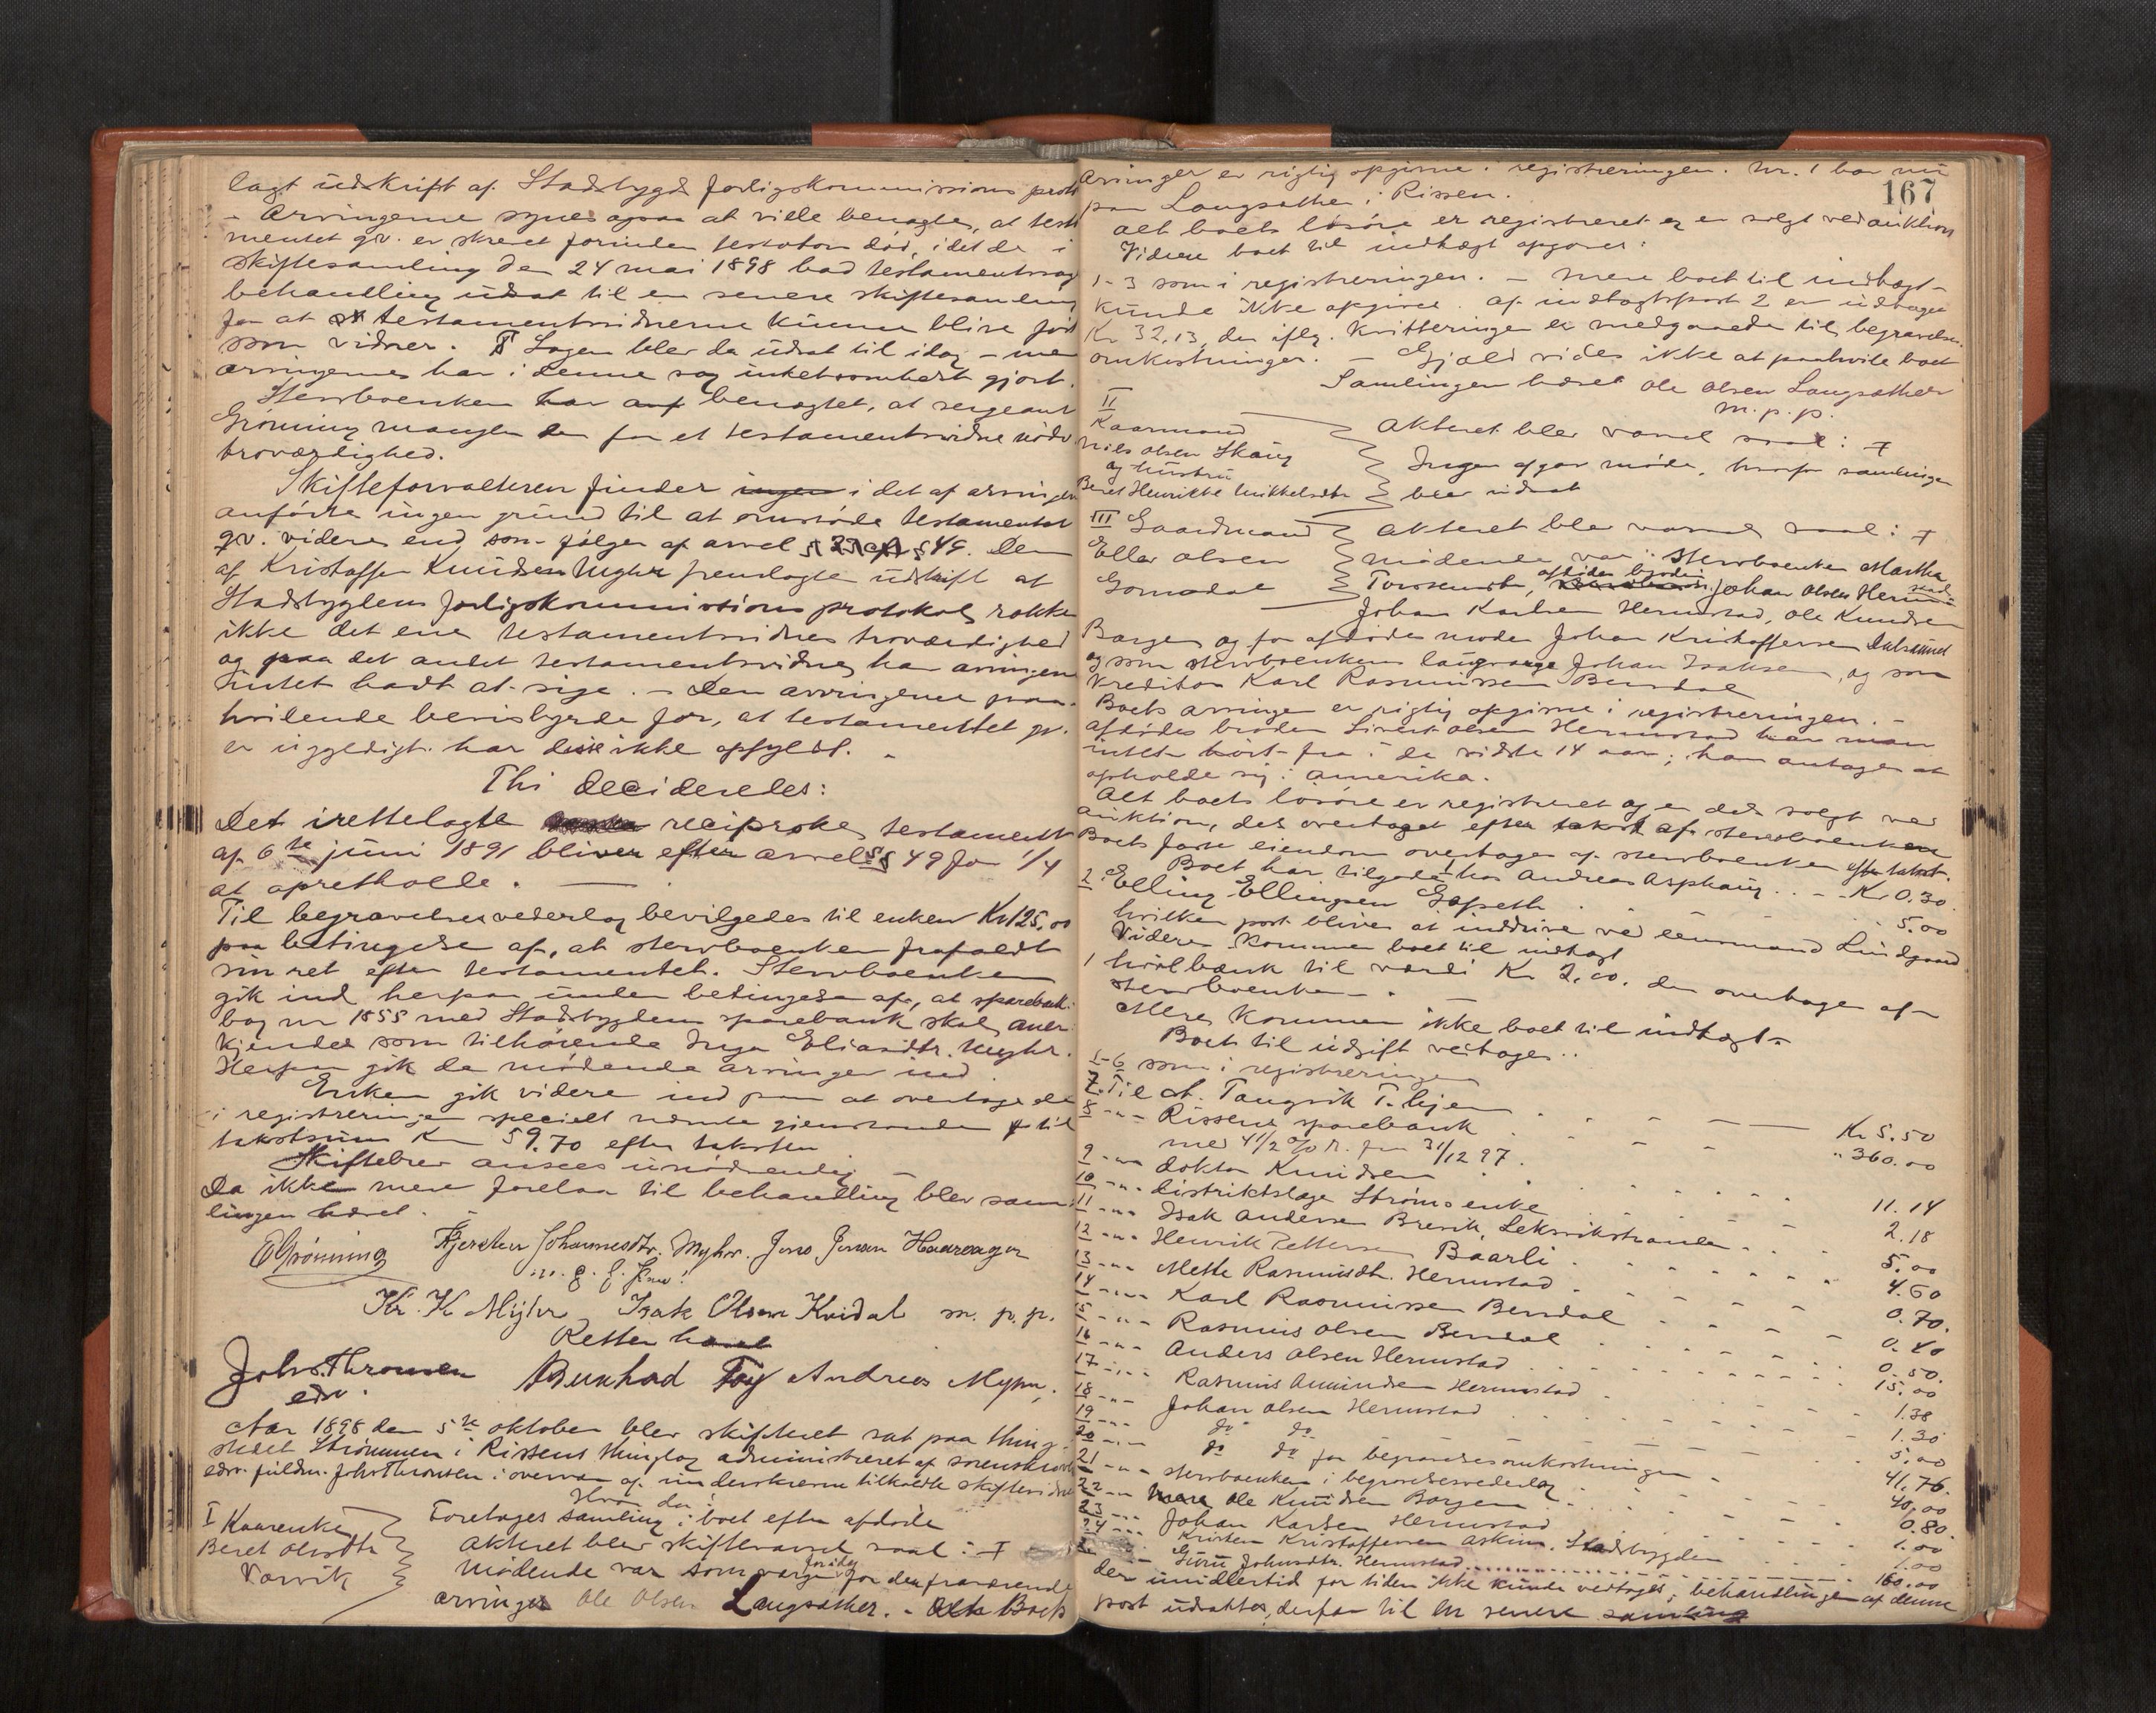 lagt udskrift af Stadsbygd forligskommissions proto
- Arvingerne synes ogsaa at ville benægte, at testa
mentet gv. er skrevet forinden testators død, idet de i
skiftesamling den 24 mai 1898 bad testamentssag
behandling udsat til en senere skiftesamling
for at testamentsvidnerne kunne blive ført
som vidner. Sagen blev da udsat til idag - men
arvingerne har i denne sag intetsomhelst gjort.
Stervboenken har benægtet, at sergeant
Grønning mangler den for et testamentsvidne nødv
troværdighed.
Skifteforvalteren finder ingen i det af arvingerne
anførte ingen grund til at omstøde testamentet
gv. videre end som følger af arvel § 49. Den
af Kristoffer Knudsen Myhr fremlagte udskrift af
Stadsbygdens forligskommissions protokol rokker
ikke det ene testamentsvidnes troværdighed
og paa det andet testamentsvidne har arvingerne
intet havt at sige. - Den arvingerne paa-
hvilende bevisbyrde for, at testamentet gv.
er ugyldigt har disse ikke opfyldt. -
Thi decideredes:
Det irettelagte reciproke testament
af 6te juni 1891 bliver efter arvel §§ 49 for 1/4
at opretholde. -
Til begravelsesvederlag bevilgedes til enken Kr 125,00
paa betingelse af, at stervboenken frafaldt
sin ret efter testamentet. Stervboenken
gik ind herpaa under betingelse af, at sparebank
bog nr 1855 med Stadsbygdens sparebank skal aner
kjendes som tilhørende Inga Eliasdtr. Myhr.
Herpaa gik de mødende arvinger ind.
Enken gik videre ind paa at overtage de
i registreringen specielt nævnte gjenstande til
takstsum Kr 59.70 efter taksten
Skiftebrev ansees unødvendig -
Da ikke mere forelaa til behandling blev sam
lingen hævet.
EGrønning Kjersten Johannesdtr. Myhr. Jens Jensen Haarvager
Kr. K Myhr Isak Olsen Kvidal m. p. p.
Retten hævet
Johs. Thronsen Bernhad Foy Andreas Myhr,
edsv.
Aar 1898 den 5te oktober blev skifteret sat paa thing-
stedet Strømmen i Rissens thinglag administreret af sorenskriver
edsv. fuldm. Johs Thronsen i overvær af underskrevne tilkaldte skiftevidner
Hvor da:
I Kaarenke Foretoges samling i boet efter afdøde
Beret Olsdtr Akteret blev skiftevarsel saal: +
Varvik Mødende var som værge for den fraværende
arvinger Ole Olsen Langsæther. - Boets
167
Arvinger er rigtig opgivne i registreringen. Nr. 1 bor nu
paa Langsæther i Rissen.
Alt boets løsøre er registreret og er solgt ved auktion
Videre boet til indtægt opgaves:
1-3 som i registreringen. - Mere boet til indtægt
kunde ikke opgives. Af indtægtspost 2 er udtaget
Kr 32,13, der iflg. kvitteringer er medgaaede til begravelses
omkostninger. - Gjæld vides ikke at paahvile boet
Samlingen hævet Ole Olsen Langsæther
m. p. p.
II
Kaarmand Akteret blev varsel saal: +
Nils Olsen Skaug Ingen afgav møde, hvorfor samlingen
og hustru blev udsat
Beret Henrikke Mikkelsdtr
III Gaardmand Akteret blev varsel saal: +
Eller Olsen Mødende var: Stervboenken Martha
Gomodal Torstensdtr, afdødes brødre Johan Olsen Hermstad
Johan Karlsen Hermstad, Ole Knudsen
Borgen og for afdødes moder Johan Kristoffersen Dalsaunet
og som stervboenkens laugværge Johan Isaksen, og som
kreditor Karl Rasmussen Bendal
Boets arvinger er rigtig opgivne i registreringen. -
Afdødes broder Sivert Olsen Hermstad har man
intet hørt fra i de sidste 14 aar; han antages at
opholde sig i Amerika.
Alt boets løsøre er registreret og er dels solgt ved
auktion, dels overtaget efter takst af stervboenken
Boets faste eiendom overtages af stervboenken efter takst.
Boet har tilgode hos Andreas Asphaug . . - Kr 0.30.
2 Elling Ellingsen Gjspeth . . . 5.00
hvilken post bliver at inddrive ved lensmand Lindgaard
Videre kommer boet til indtægt
1 høvlbænk til værdi Kr 2,00, der overtages af
stervboenken. -
Mere kommer ikke boet til indtægt -
Boet til udgift vedtoges:
1-6 som i registreringen
7. Til A. Tangvik T.hjem . . . Kr 5.50
8 - " - Rissens sparebank . . " 360.00
med 4 1/2 % R. fra 31/12 97.
9 - " - doktor Knudsen . . . 11.14
10 - " - distriktslæge Strøms enke . . 2.18
11 - " - Isak Andersen Brevik, Leksvikstranden . . 5.00
12 - " - Henrik Pettersen Baarli . . . 4.60
13 - " - Mette Rasmusdtr. Hermstad . . 0.70.
14 - " - Karl Rasmussen Bendal . . 0.40
15 - " - Rasmus Olsen Bendal . . 0.50.
16 - " - Anders Olsen Hermstad . . 15.00
17 - " - Rasmus Amundsen Hermstad . . 1.38
18 - " - Johan Olsen Hermstad . . 1.30
19 - " - do do . . 5,00
20 - " - do do for begravelsesomkostninger . 41,76.
21 - " - stervboenken i begravelsesvederlag . . 40,00
22 - " - Ole Knudsen Borgen . . 0.80.
23 - " - Johan Karlsen Hermstad . . 1.00
24 - " - Kristen Kristoffersen Askim. Stadsbygden . . 1.00
Guru Johnsdtr. Hermstad . . . 160.00
der imidlertid for tiden ikke kunde vedtages; behandlingen af denne
post udsattes, derfor til en senere samling